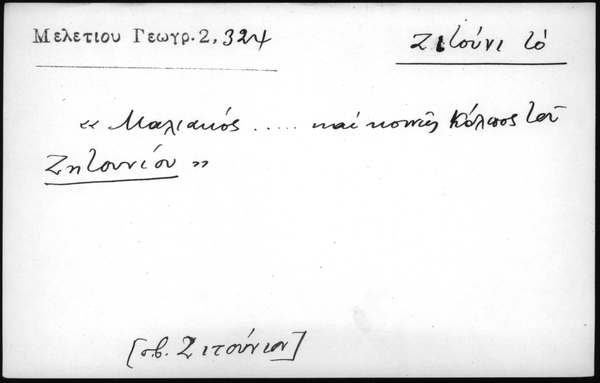 Μελετίου Γεωγρ. 2, 324
Ζιτούνι τό
« Μαλιακός ..... καί κοινῶς Κόλπος τοῦ
Ζητουνίου »
[πβ. Ζιτούνιον]